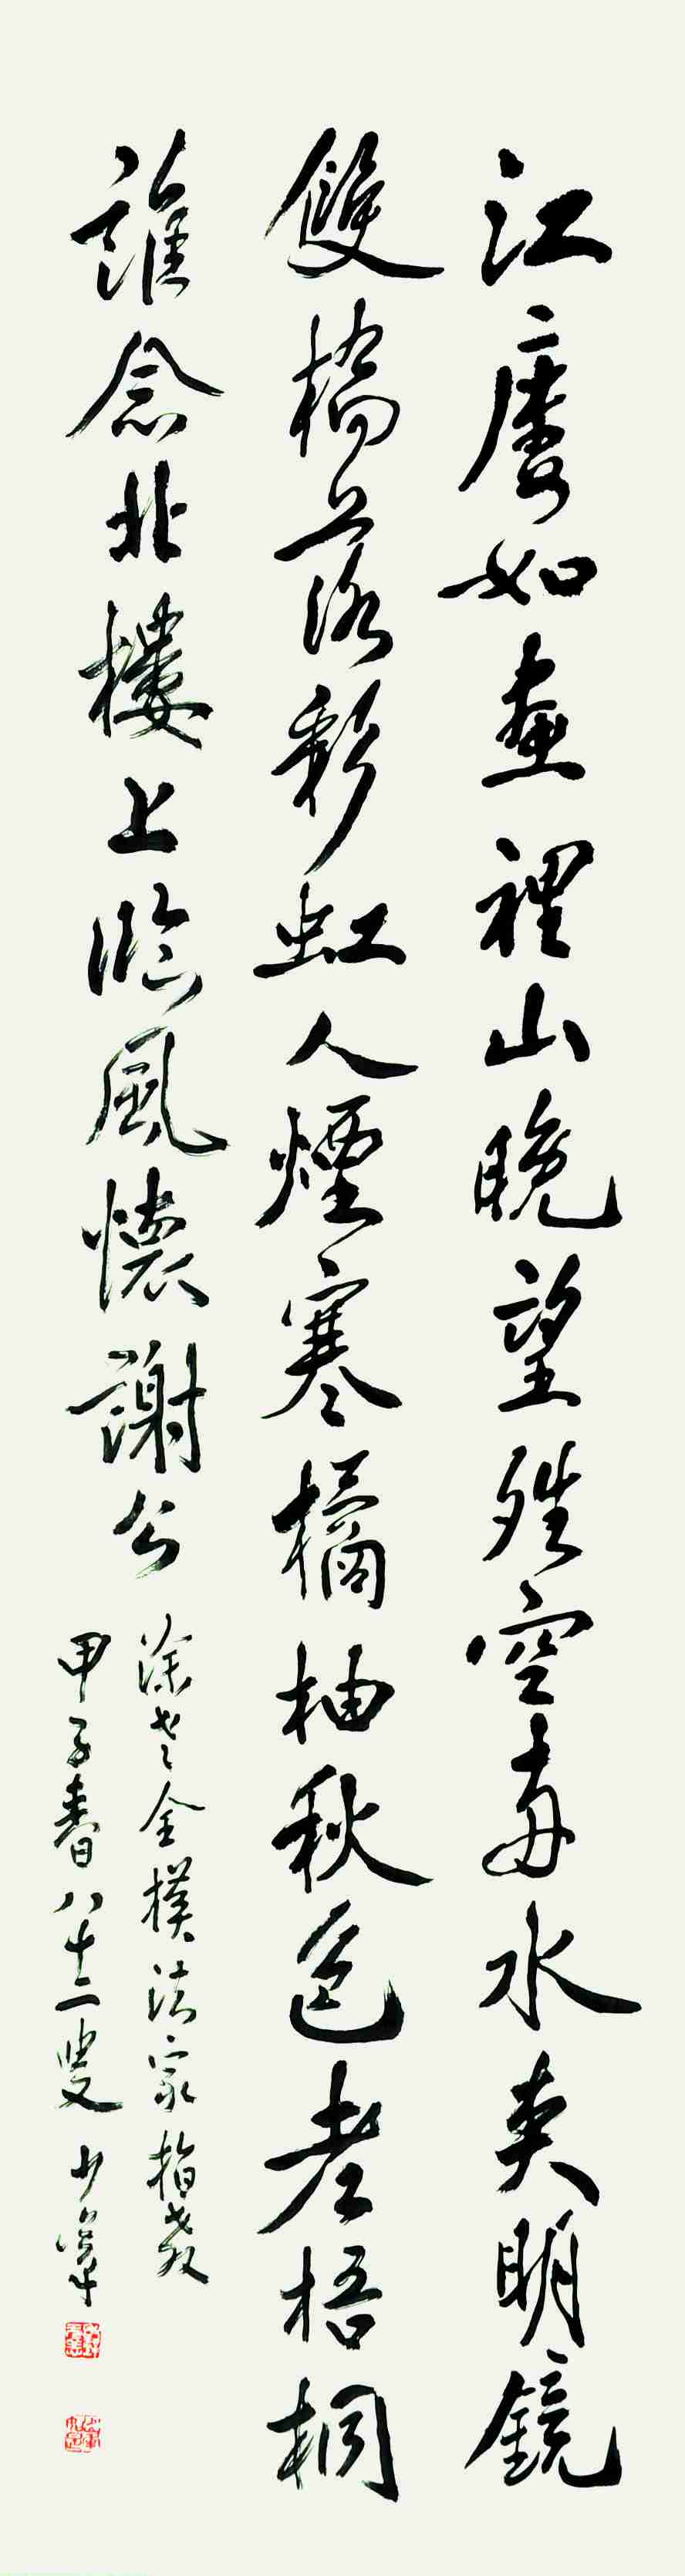 江如畫裡山晚望晴空兩水夾明鏡
雙橋落彩虹人煙寒橘柚秋色老梧桐
誰念北樓上臨風懷謝公
老全樸法家指教
甲子春八十二叟少